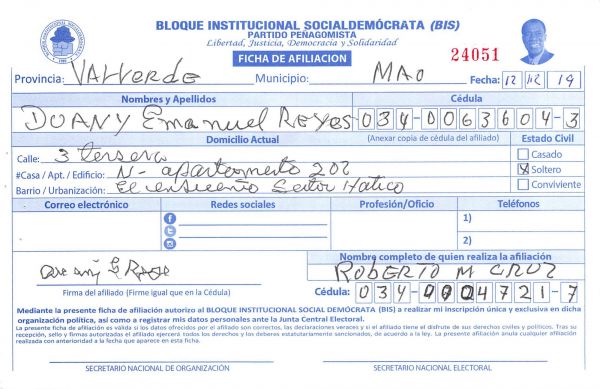 BLOQUE INSTITUCIONAL SOCIALDEMÓCRATA (BIS)
PARTIDO PEÑAGOMISTA
Libertad, Justicia, Democracia y Solidaridad
FICHA DE AFILIACION
24051
Provincia: VALVERDE Municipio: MAO Fecha: 12 12 19
Nombres y Apellidos Cédula
DUANY Emanuel REYES 034-0063604-3
Domicilio Actual (Anexar copia de cédula del afiliado) Estado Civil
Calle: 3 tersera
Casado
#Casa / Apt. / Edificio: N- apartemento 202
X Soltero
Barrio / Urbanización: El ensueño Sector Hatico
Conviviente
Correo electrónico Redes sociales Profesión/Oficio Teléfonos
1)
2)
Nombre completo de quien realiza la afiliación
ROBERTO M CRUZ
Firma del afiliado (Firme igual que en la Cédula)
Cédula: 034-0024721-7
Mediante la presente ficha de afiliación autorizo al BLOQUE INSTITUCIONAL SOCIAL DEMÓCRATA (BIS) a realizar mi inscripción única y exclusiva en dicha
organización política, así como a registrar mis datos personales ante la Junta Central Electoral.
La presente ficha de afiliación es válida si los datos ofrecidos por el afiliado son correctos, las declaraciones veraces y si el afiliado tiene el disfrute de sus derechos civiles y políticos. Tras su
recepción, sello y firmas autorizadas el afiliado ejercerá todos los derechos y los deberes estatutariamente sancionados, de acuerdo a la ley. La presente afiliación anula cualquier afiliación
realizada con anterioridad a la fecha que aparece en esta ficha.
SECRETARIO NACIONAL DE ORGANIZACIÓN SECRETARIO NACIONAL ELECTORAL